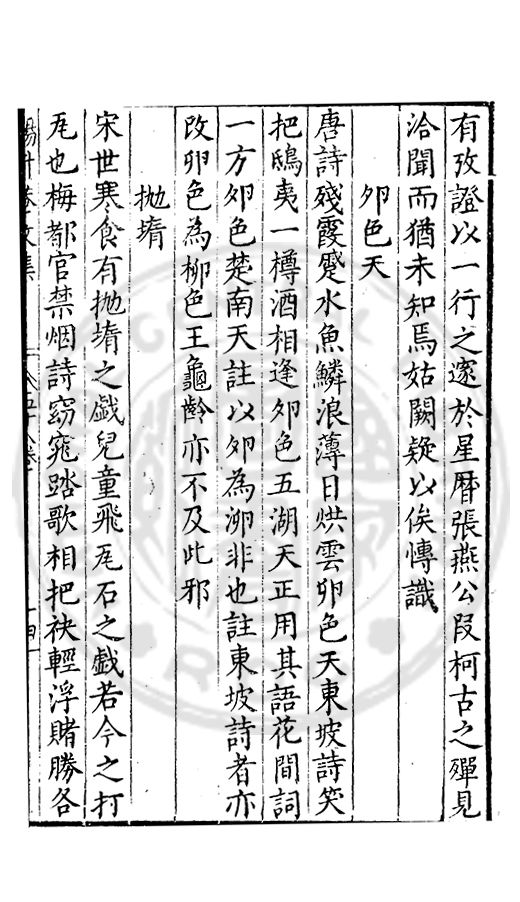 有攷證以一行之邃於星曆張燕公段柯古之殫見
洽聞而猶未知焉姑闕疑以俟慱識
卵色天
唐詩殘霞蹙水魚鱗浪薄日烘雲卵色天東坡詩笑
把鴟夷一樽酒相逢卵色五湖天正用其語花間詞
一方卵色楚南天註以卵為泖非也註東坡詩者亦
改卵色為柳色王龜齡亦不及此邪
抛堶
宋世寒食有抛堶之戯兒童飛瓦石之戯若今之打
瓦也梅都官禁烟詩窈窕踏歌相把袂輕浮賭勝各